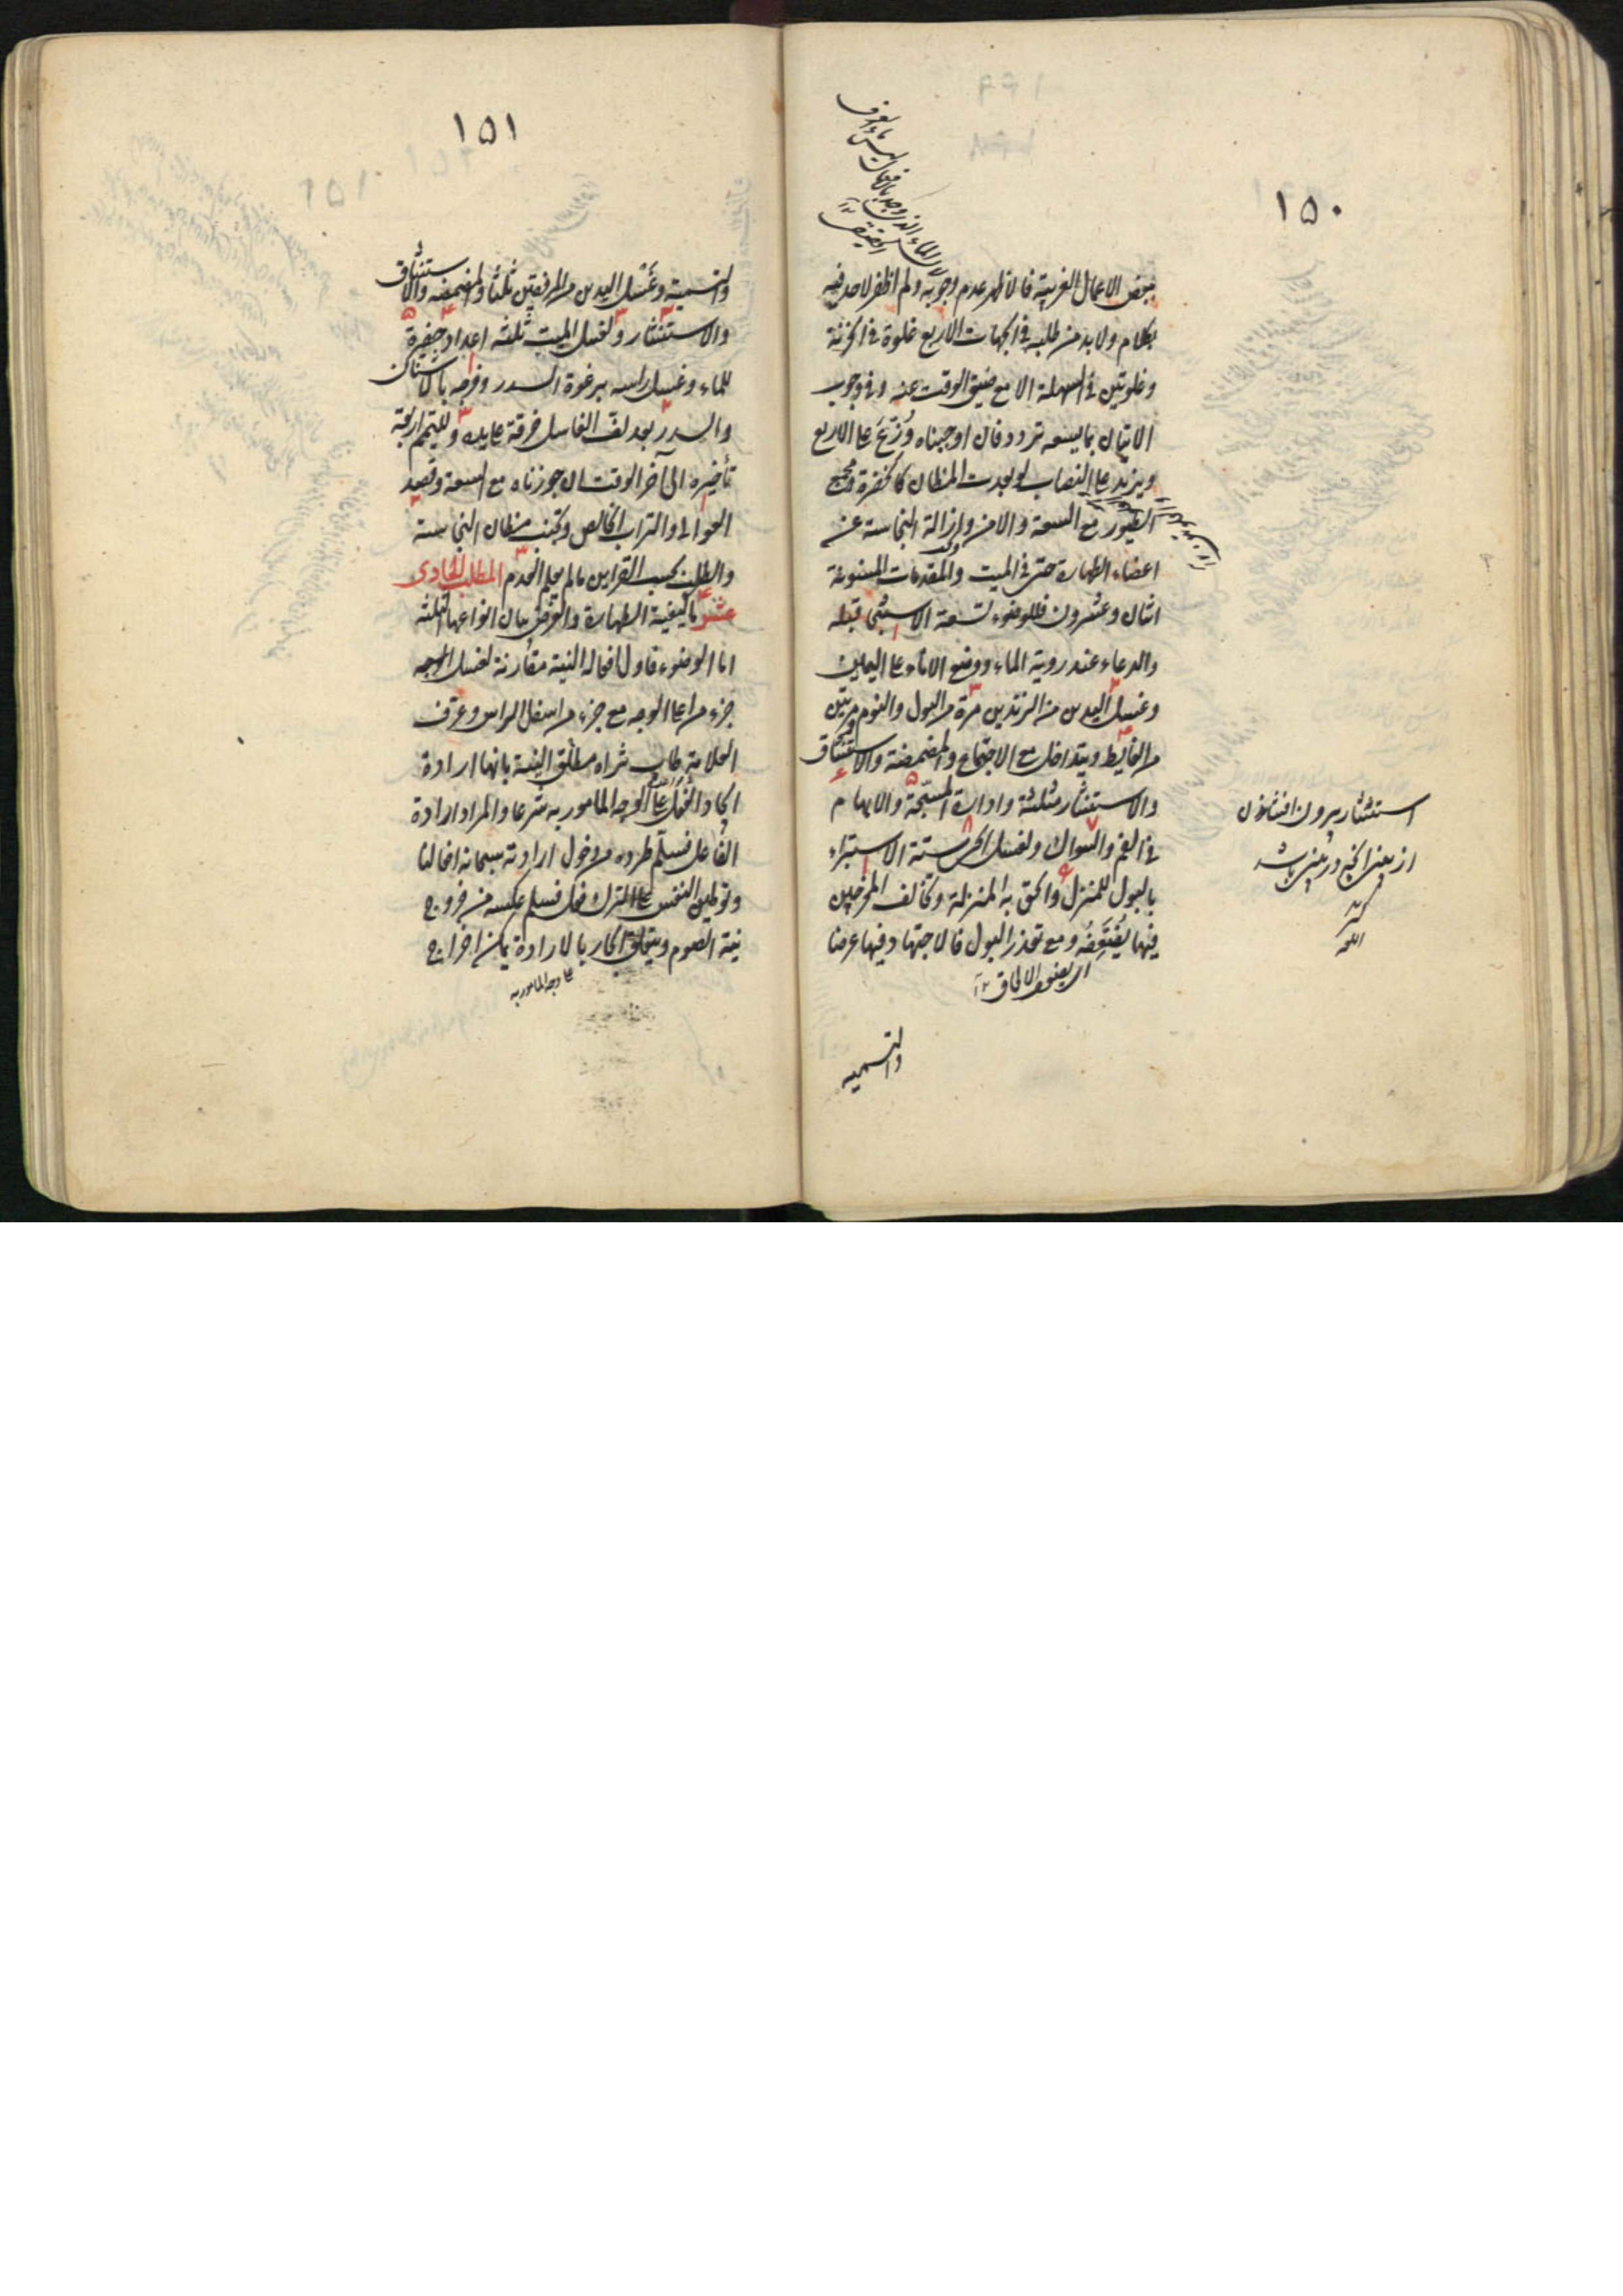 ١٥٠
ببعض الاعمال الغريبة فالاظهر عدم وجوبه ولم اظفر لاحد فيه
بكلام ولابد من طلبه في الجهات الاربع غلوة في الحزنة
وغلوتين في السهلة الا مع ضيق الوقت عنه وفي وجوب
الاتيان بما يسعه تردد فان اوجبناه وُزّعَ على الاربع
ويزيد على النصاب لو بعدت المظان كالخضرة ومجمع
الطيور مع السعة والامن وازالة النجاسة عن
اعضاء الطهارة حتى في الميت والمقدمات المسنونة
اثنان وعشرون فللوضوء تسعة الاستنجا قبله
والدعاء عند روية الماء ووضع الاناء على اليمين
وغسل اليدين من الزندين مرة من البول والنوم ومرتين
من الغايط ويتداخل مع الاجتماع والمضمضة والاستنشاق
والاستنثار مثلثة وادارة المسبّحة والابهام
في الفم والسواك ولغسل الحي ستة الاستبراء
بالبول للمنزل والحق به المنزلة وتخالف المخرجين
فيها يُضَعِّفُه ومع تعذر البول فالاجتهاد فيها عرضا
اى يضعف الالحاق ١٢
والتسميه
استنثار بيرون افشاندن
از بينى آنچه در بينى باشد
كنز
اللغه
١٥١
والتسمية وغَسْل اليدين من المرفقين ثلثا والمضمضه والاستنشاق
والاستنثار ولغسل الميت ثلثه اعداد حفيرة
للماء وغسل راسه برغوة السدر وفرجه بالاشنان
والسدر بعد لف الغاسل خرقة على يده وللتيمم اربعة
تأخيره الى آخر الوقت ان جوزناه مع السعة وقصد
العوالى والتراب الخالص وتجنب مظان النجاسة
والطلب بحسب القراين مالم يعلم العدم المطلب الحادى
عشر فى كيفية الطهارة والغرض بيان انواعها الثلثة
اما الوضوء فاول افعاله النية مقارنة لغسل الوجه
جزء من اعلى الوجه مع جزء من اسفل الراس وعرّف
العلامة طاب ثراه مطلق النية بانها ارادة
ايجاد الفعل على الوجه المامور به شرعا والمراد ارادة
الفاعل فسلم طرده من دخول ارادته سبحانه افعالنا
وتوطين النفس على الترك فعل فسلم عكسه من خروج
نية الصوم وبتعلق الجار بالارادة يمكن اخراج
على وجه المامور به